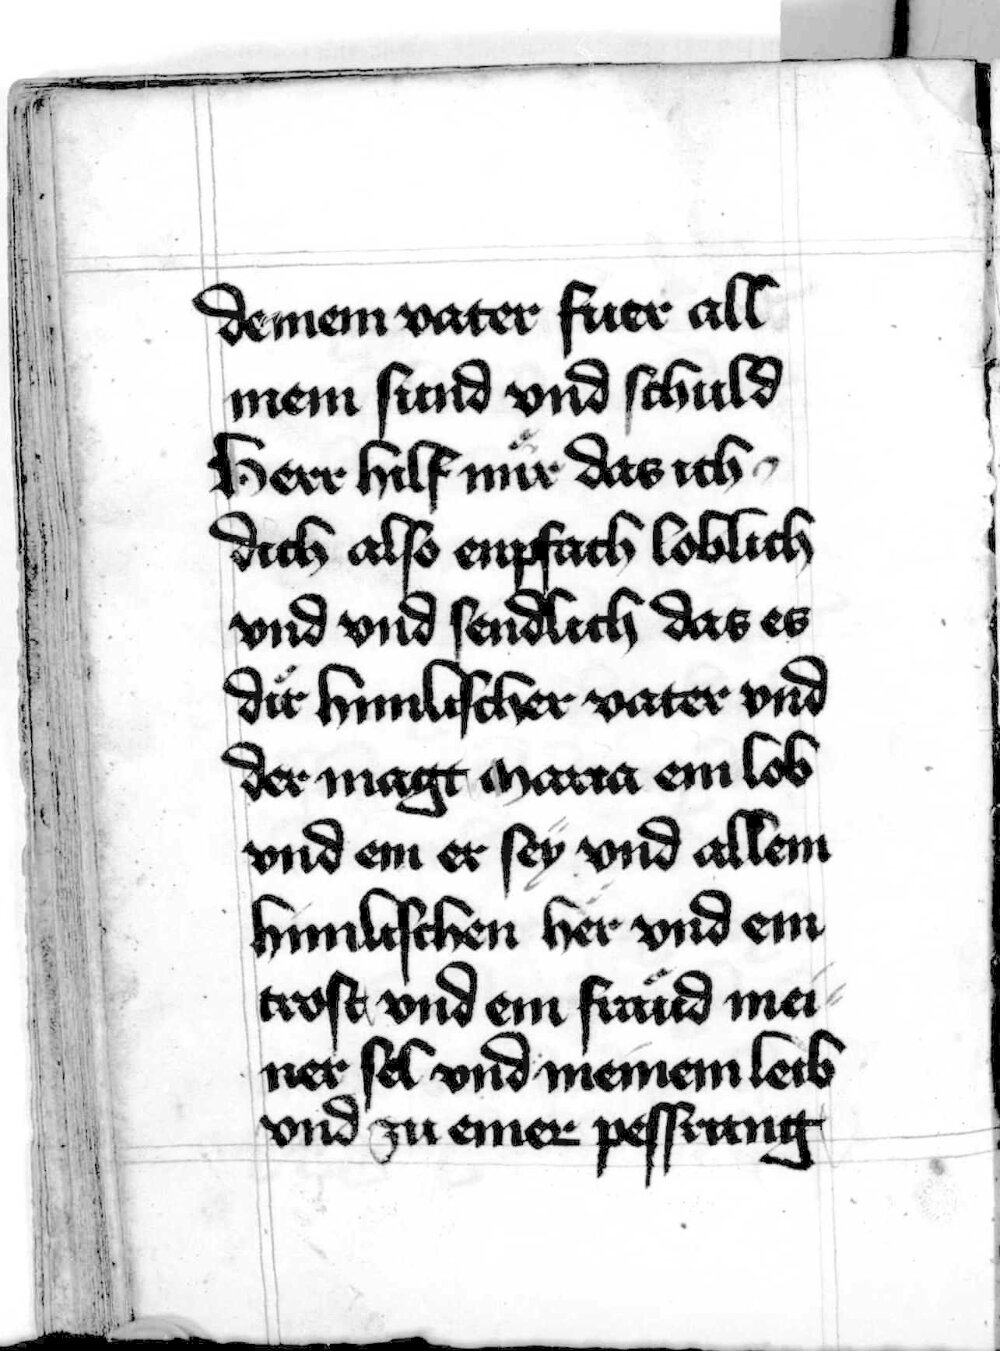 deinem vater fuer all
mein sund vnd schuld
Herr hilf mir das ich
dich also enpfach loblich
vnd vnd sendlich das es
dir himlischer vater vnd
der magt maria ein lob
vnd ein er sey vnd allem
himlischen her vnd ein
trost vnd ein fraud mei
ner sel vnd meinem leib
vnd zu einer pessrung